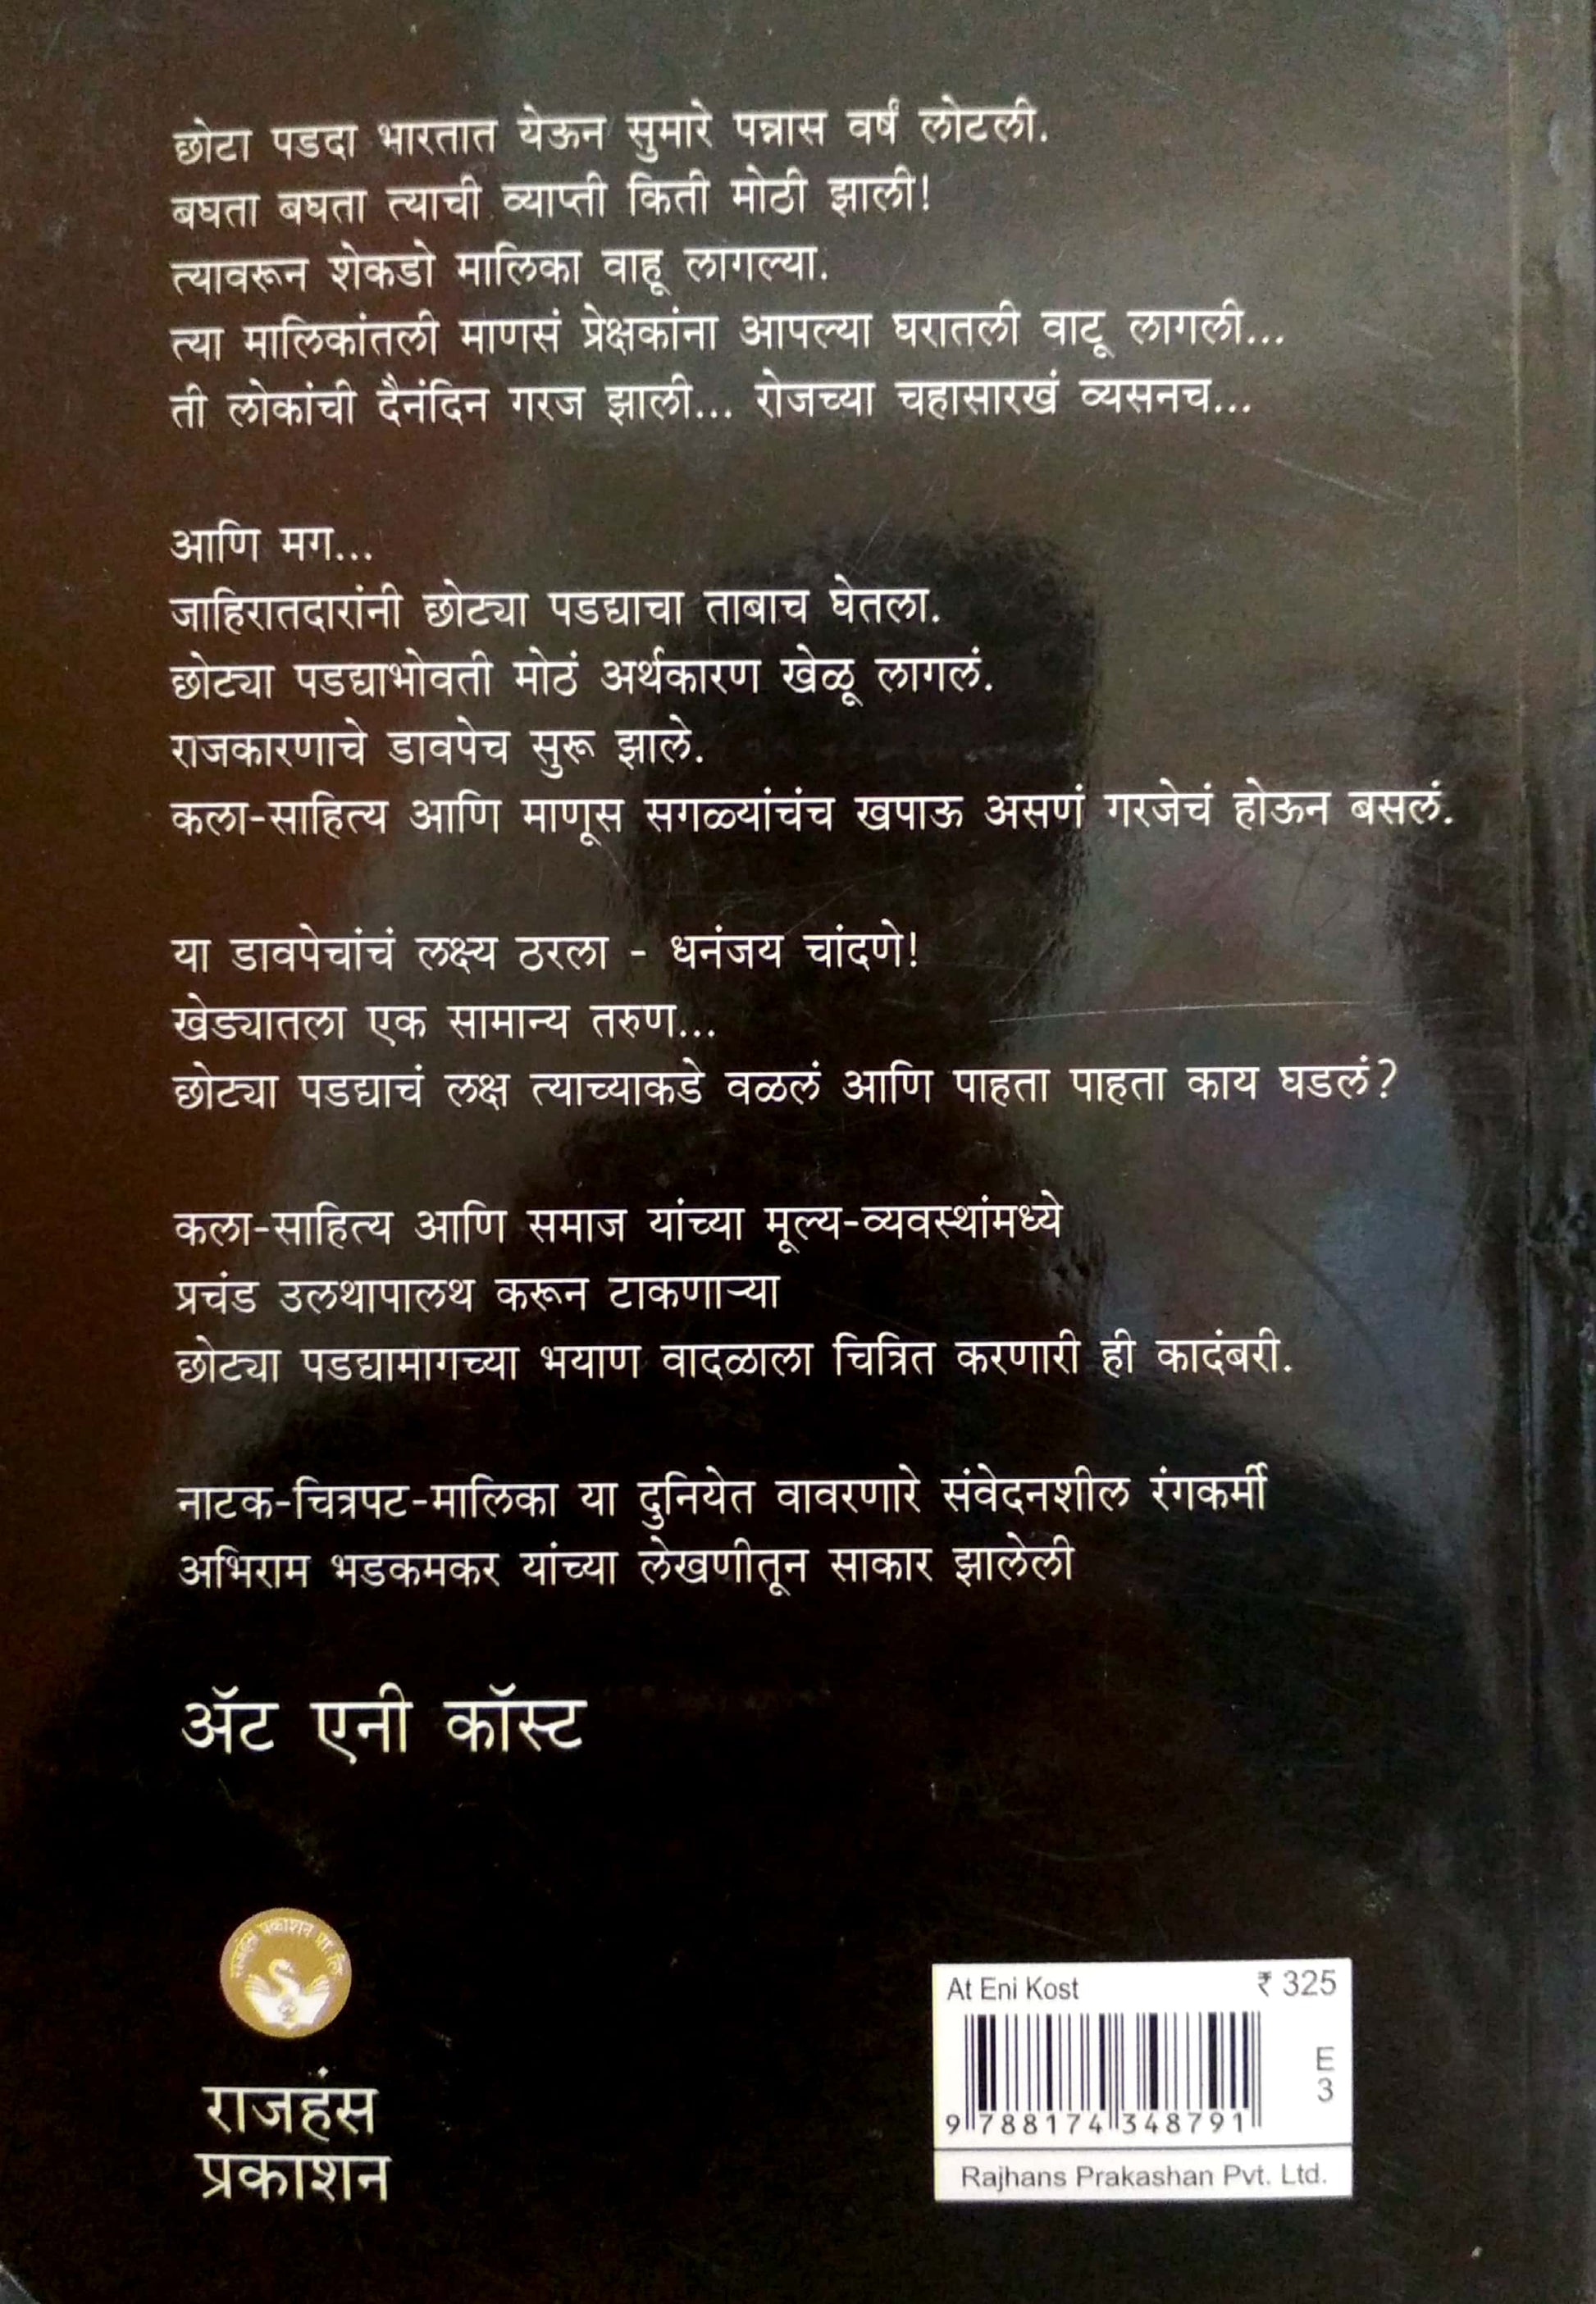 छोटा पडदा भारतात येऊन सुमारे पन्नास वर्षं लोटली.
बघता बघता त्याची व्याप्ती किती मोठी झाली!
त्यावरून शेकडो मालिका वाहू लागल्या.
त्या मालिकांतली माणसं प्रेक्षकांना आपल्या घरातली वाटू लागली...
ती लोकांची दैनंदिन गरज झाली... रोजच्या चहासारखं व्यसनच...
आणि मग...
जाहिरातदारांनी छोट्या पडद्याचा ताबाच घेतला.
छोट्या पडद्याभोवती मोठं अर्थकारण खेळू लागलं.
राजकारणाचे डावपेच सुरू झाले.
कला-साहित्य आणि माणूस सगळ्यांचंच खपाऊ असणं गरजेचं होऊन बसलं.
या डावपेचांचं लक्ष्य ठरला - धनंजय चांदणे!
खेड्यातला एक सामान्य तरुण...
छोट्या पडद्याचं लक्ष त्याच्याकडे वळलं आणि पाहता पाहता काय घडलं?
कला-साहित्य आणि समाज यांच्या मूल्य-व्यवस्थांमध्ये
प्रचंड उलथापालथ करून टाकणाऱ्या
छोट्या पडद्यामागच्या भयाण वादळाला चित्रित करणारी ही कादंबरी.
नाटक-चित्रपट-मालिका या दुनियेत वावरणारे संवेदनशील रंगकर्मी
अभिराम भडकमकर यांच्या लेखणीतून साकार झालेली
ॲट एनी कॉस्ट
राजहंस प्रकाशन प्रा. लि.
राजहंस
प्रकाशन
At Eni Kost ₹ 325
E
3
9 788174 348791
Rajhans Prakashan Pvt. Ltd.